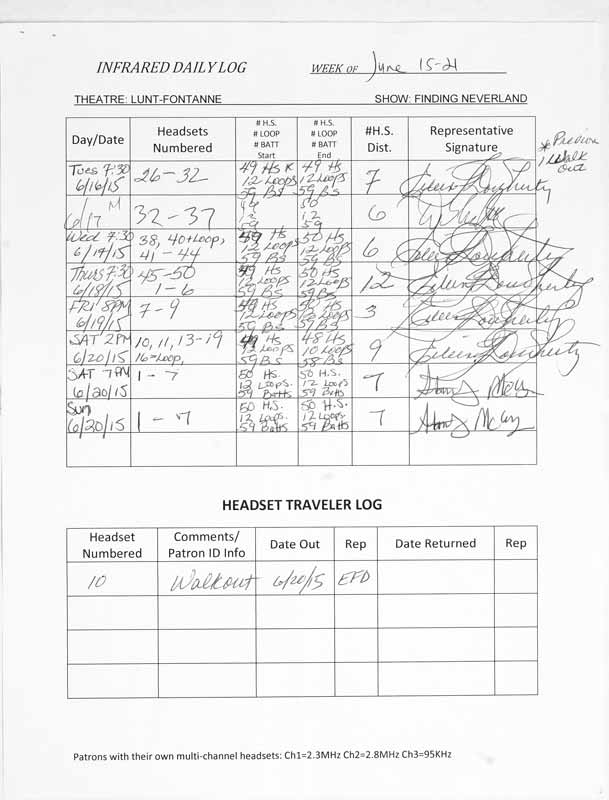 INFRARED DAILY LOG WEEK OF June 15-21
THEATRE: LUNT-FONTANNE SHOW: FINDING NEVERLAND
Day/Date Headsets Numbered # H.S. # LOOP # BATT Start # H.S. # LOOP # BATT End #H.S. Dist. Representative Signature
* Previous
1 Walk
out
Tues 7:30 6/16/15 26-32 49 Hs 12 Loops 59 Bs 49 Hs 12 Loops 59 Bs 7 Eileen Dougherty
6/17 M 32-37 12 59 50 12 59 6
Wed 7:30 6/17/15 38, 40+Loop, 41-44 49 Hs 12 Loops 59 Bs 50 Hs 12 Loops 59 Bs 6 Eileen Dougherty
Thurs 7:30 6/18/15 45-50 1-6 49 Hs 12 Loops 59 Bs 50 Hs 12 Loops 59 Bs 12 Eileen Dougherty
FRI 8PM 6/19/15 7-9 49 Hs 12 Loops 59 Bs Hs 12 Loops 59 Bs 3 Eileen Dougherty
SAT 2PM 6/20/15 10, 11, 13-19 16=Loop, 49 Hs 12 Loops 59 Bs 48 Hs 10 Loops 58 Bs 9 Eileen Dougherty
SAT 7PM 6/20/15 1-7 50 Hs. 12 Loops. 59 Batts 50 H.S. 12 Loops 59 Batts 7
Sun 6/20/15 1-7 50 H.S. 12 Loops. 59 Batts 50 H.S. 12 Loops 59 Batts 7
HEADSET TRAVELER LOG
Headset Numbered Comments/ Patron ID Info Date Out Rep Date Returned Rep
10 Walkout 6/20/15 EFD
Patrons with their own multi-channel headsets: Ch1=2.3MHz Ch2=2.8MHz Ch3=95KHz